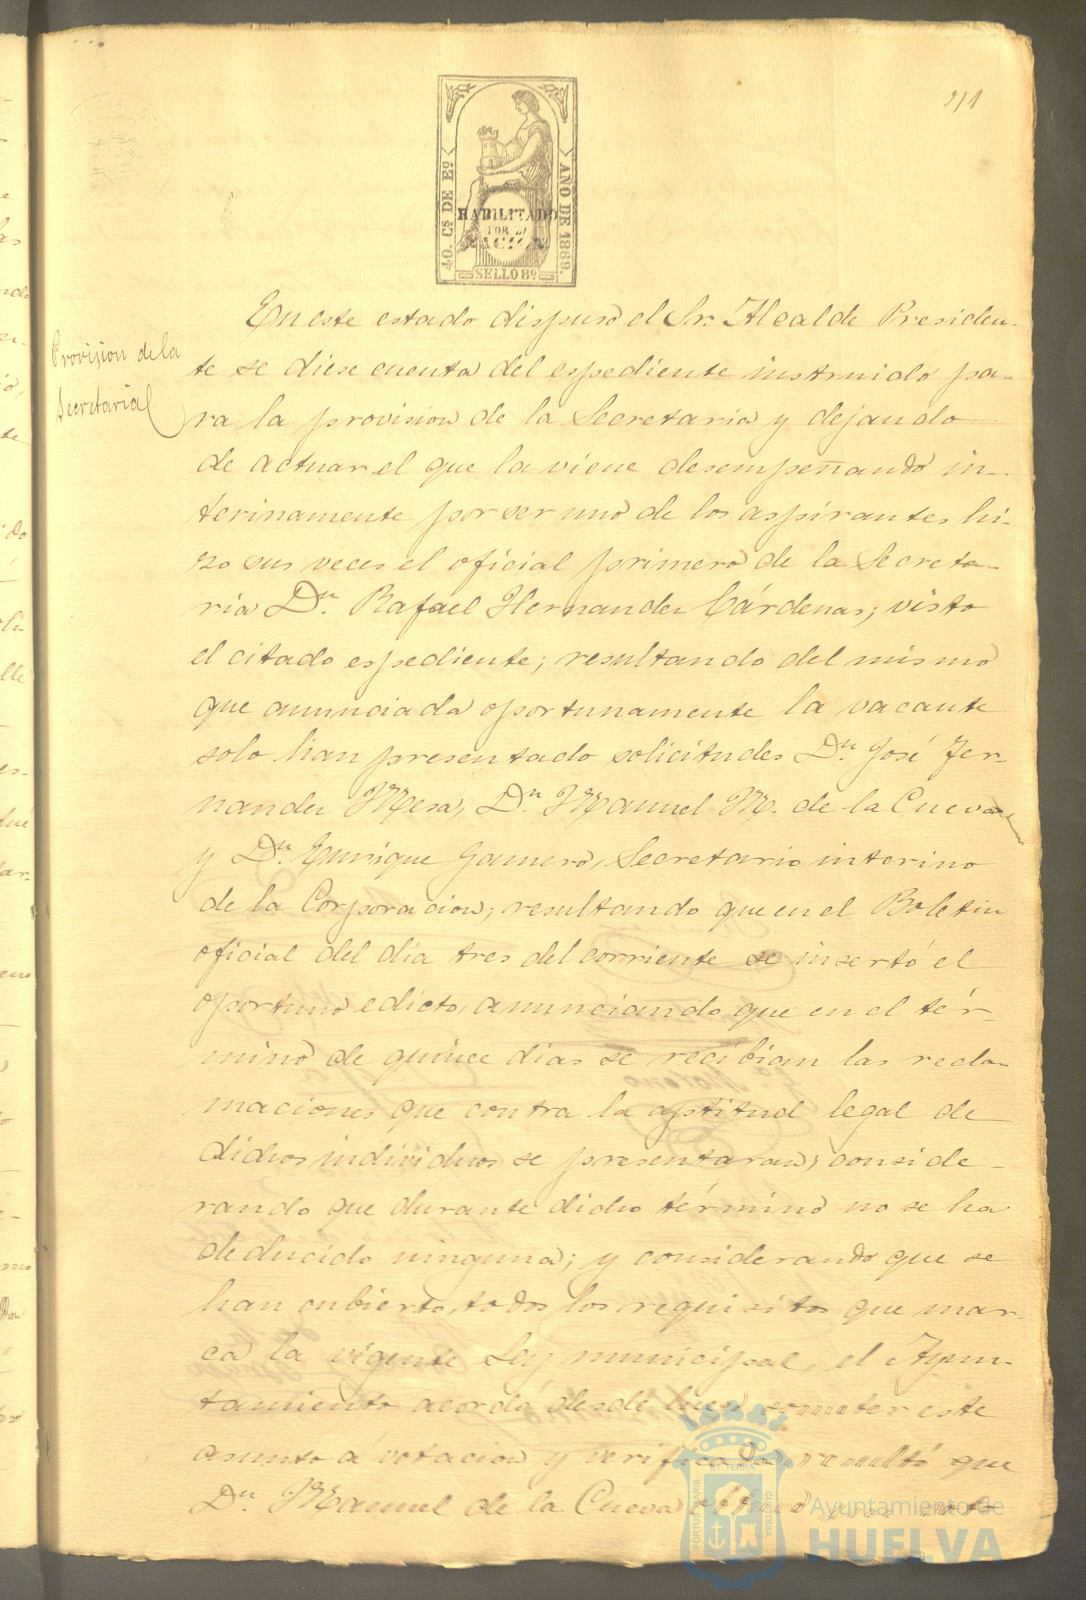 211
40. Cs DE Eº
AÑO DE 1869.
HABILITADO
POR LA
NACION
SELLO 8º
Provision de la
Secretaria
En este estado dispuso el Sr. Alcalde Presiden-
te se diese cuenta del espediente instruido pa-
ra la provision de la Secretaria y dejando
de actuar el que la viene desempeñando in-
terinamente por ser uno de los aspirantes hi-
zo sus veces el oficial primero de la Secreta-
ria Dn. Rafael Hernandez Cárdenas; visto
el citado espediente; resultando del mismo
que anunciada oportunamente la vacante
solo han presentado solicitudes Dn. José Fer-
nandez Mesa, Dn. Manuel M. de la Cueva
y Dn. Enrique Gamero, Secretario interino
de la Corporacion; resultando que en el Boletin
oficial del dia tres del corriente se insertó el
oportuno edicto, anunciando que en el tér-
mino de quince dias se recibian las recla-
maciones que contra la aptitud legal de
dichos individuos se presentaran; conside-
rando que durante dicho término no se ha
deducido ninguna; y considerando que se
han cubierto todos los requisitos que mar-
ca la vigente Ley municipal, el Ayun-
tamiento acordó desde luego someter este
asunto a votacion y verificada resultó que
Dn. Manuel de la Cueva obtuvo un voto
PORTUS MARIS
ET TERRAE
CUSTODIA
Ayuntamiento de
HUELVA